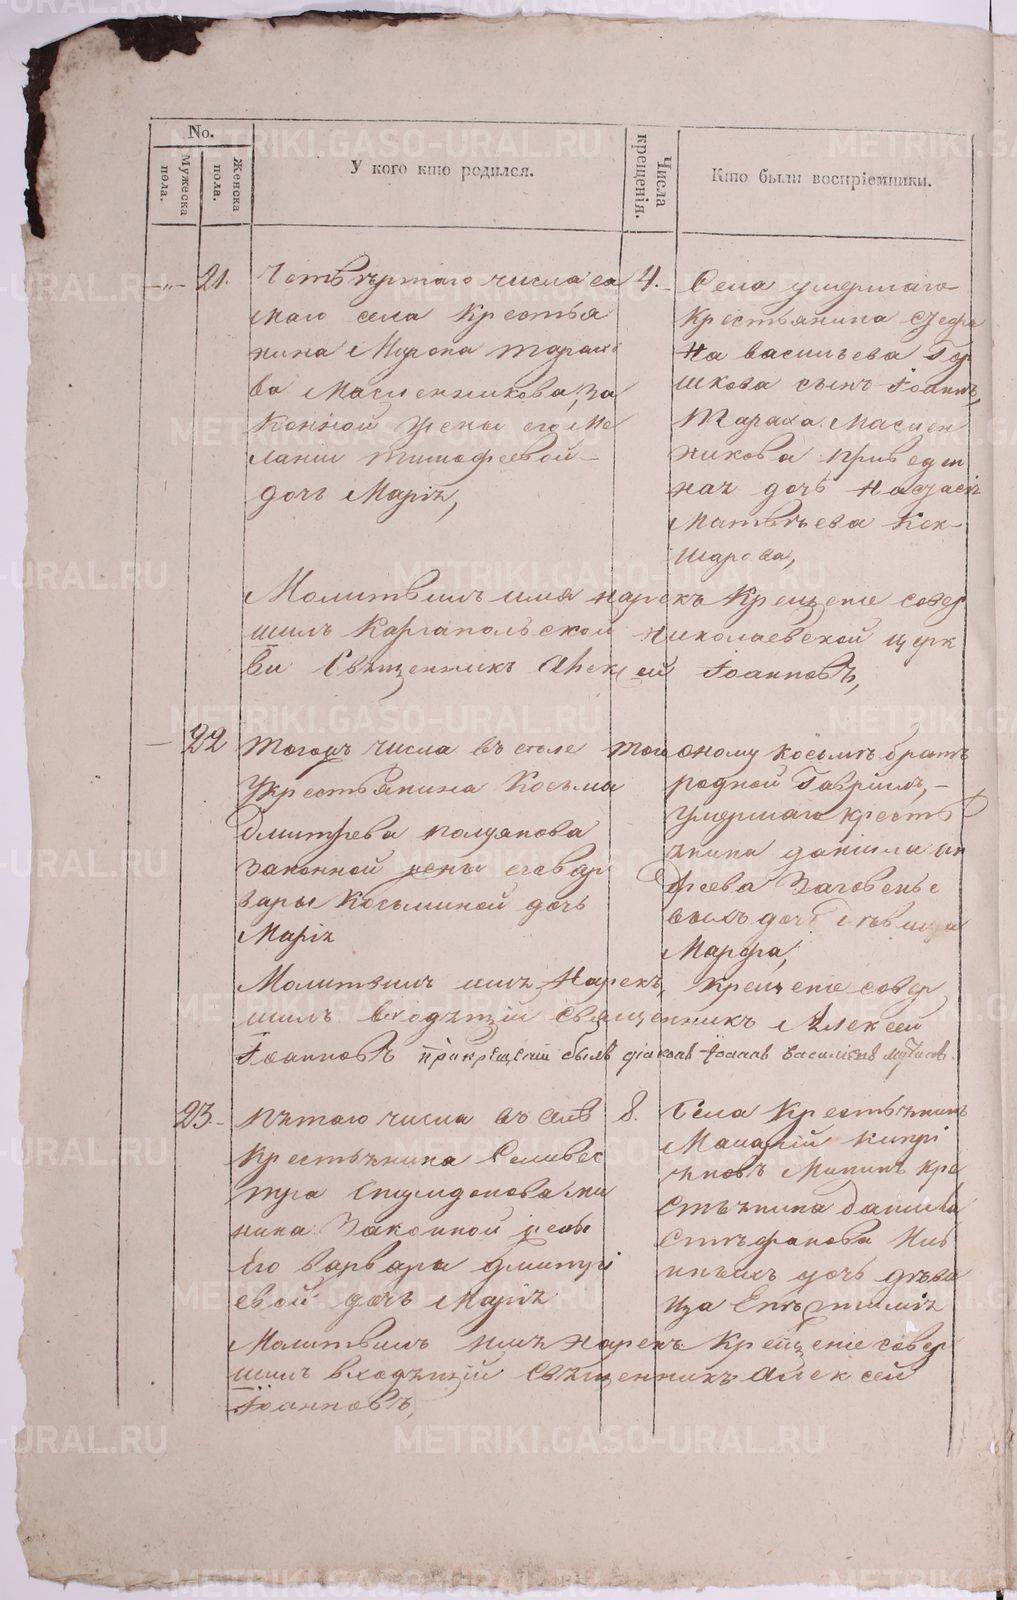 No.
Мужеска пола.
Женска пола.
У кого кто родился.
Числа крещенія.
Кто были воспріемники.
21.
Четвертаго числа са
маго села Крестья
нина Мирона тарахо
ва Масленникова, за
конной жены его Ме
ланіи тимофеевой
дочь Маріѧ,
4.
Села умершаго
Крестьянина Стефа
на васильева Гор
шкова сынъ Іоаннъ,
Тараха Маслен
никова приведен
наѧ дочь Настасіѧ
Матвѣева Кок-
шарова,
Молитвилъ имя нарекъ Крещеніе совер
шилъ Каргапольской николаевской церк
ви Священникъ Алексей Іоанновъ,
22
тогожъ числа въ селе
Укрестьянина Косьма
Дмитрева полуянова
Законной жены его вар
вары Косьминой дочь
Маріѧ
тогож
оному косьмѣ братъ
родной Гавріилъ,
Умершаго крест
ѧнина даніила
фѣева
выхъ дочь девица
Марфа,
Молитвилъ имѧ Нарекъ, Крещеніе совер
шилъ входѧщій свѧщенникъ Алексей
Іоанновъ прикрещеніи былъ діаконъ Іоаннъ василіевъ
23.
пѧтаго числа въ селѣ
Крестьѧнина Селивес
тра Спиридонова ми
нина Законной жены
Его Варвары дмитрі
евой дочь Маріѧ
8.
Села Крестьѧнинъ
Макарій Кипрі
ѧновъ Мининъ Кре
стьѧнина Даниила
Стефанова
дочь деви
ца Евѳиміѧ
Молитвилъ имѧ нарекъ Крещеніе совер
шилъ входѧщій Свѧщенникъ Алексей
Іоанновъ,
METRIKI.GASO-URAL.RU